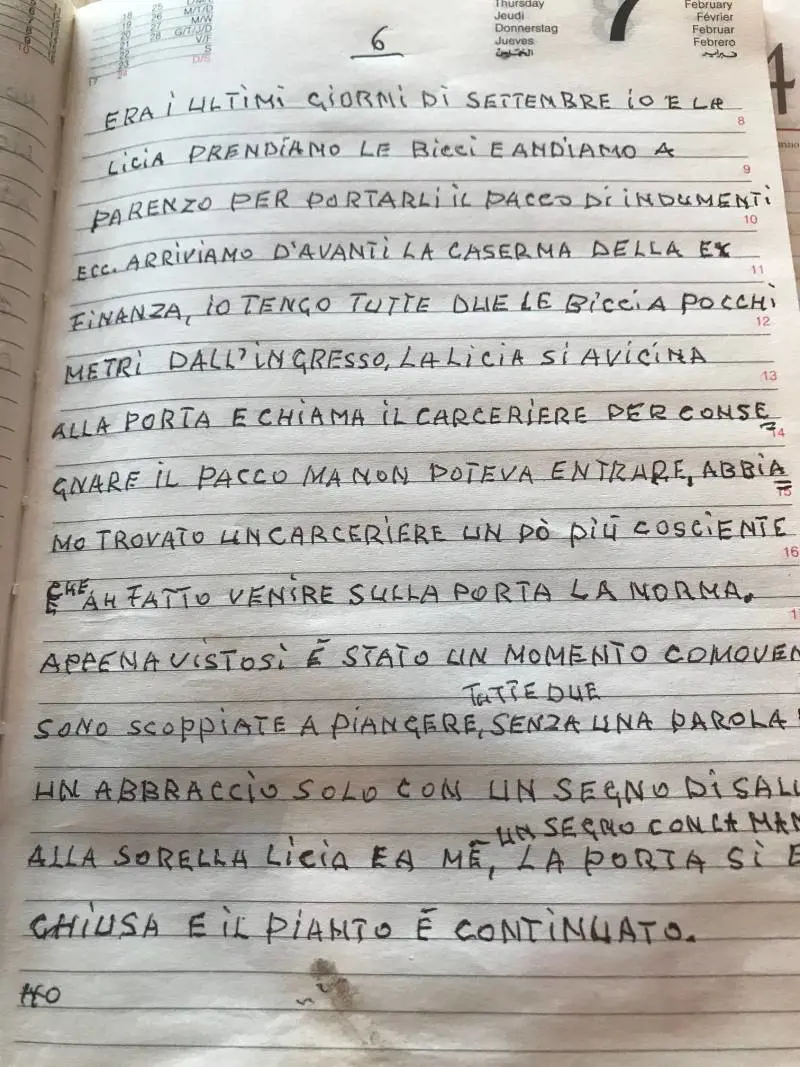 Thursday
Jeudi
Donnerstag
Jueves
الخميس
February
Février
Februar
Febrero
فبراير
7
6
ERA I ULTIMI GIORMI DI SETTEMBRE IO E LA
8
LICIA PRENDIAMO LE BICCI E ANDIAMO A
9
PARENZO PER PORTARLI IL PACCO DI INDUMENTI
10
ECC. ARRIVIAMO D'AVANTI LA CASERMA DELLA EX
11
FINANZA, IO TENGO TUTTE DUE LE BICCI A POCCHI
12
METRI DALL'INGRESSO, LA LICIA SI AVICINA
13
ALLA PORTA E CHIAMA IL CARCERIERE PER CONSE
14
GNARE IL PACCO MA NON POTEVA ENTRARE, ABBIA
15
MO TROVATO UN CARCERIERE UN PÒ PIÙ COSCIENTE
16
CHE AH FATTO VENIRE SULLA PORTA LA NORMA.
APPENA VISTOSI È STATO UN MOMENTO COMOVEN
TUTTE DUE
SONO SCOPPIATE A PIANGERE, SENZA UNA PAROLA
UN ABBRACCIO SOLO CON UN SEGNO DI SALU
UN SEGNO CON LA MAN
ALLA SORELLA LICIA E A MÈ, LA PORTA SI E
CHIUSA E IL PIANTO È CONTINUATO.